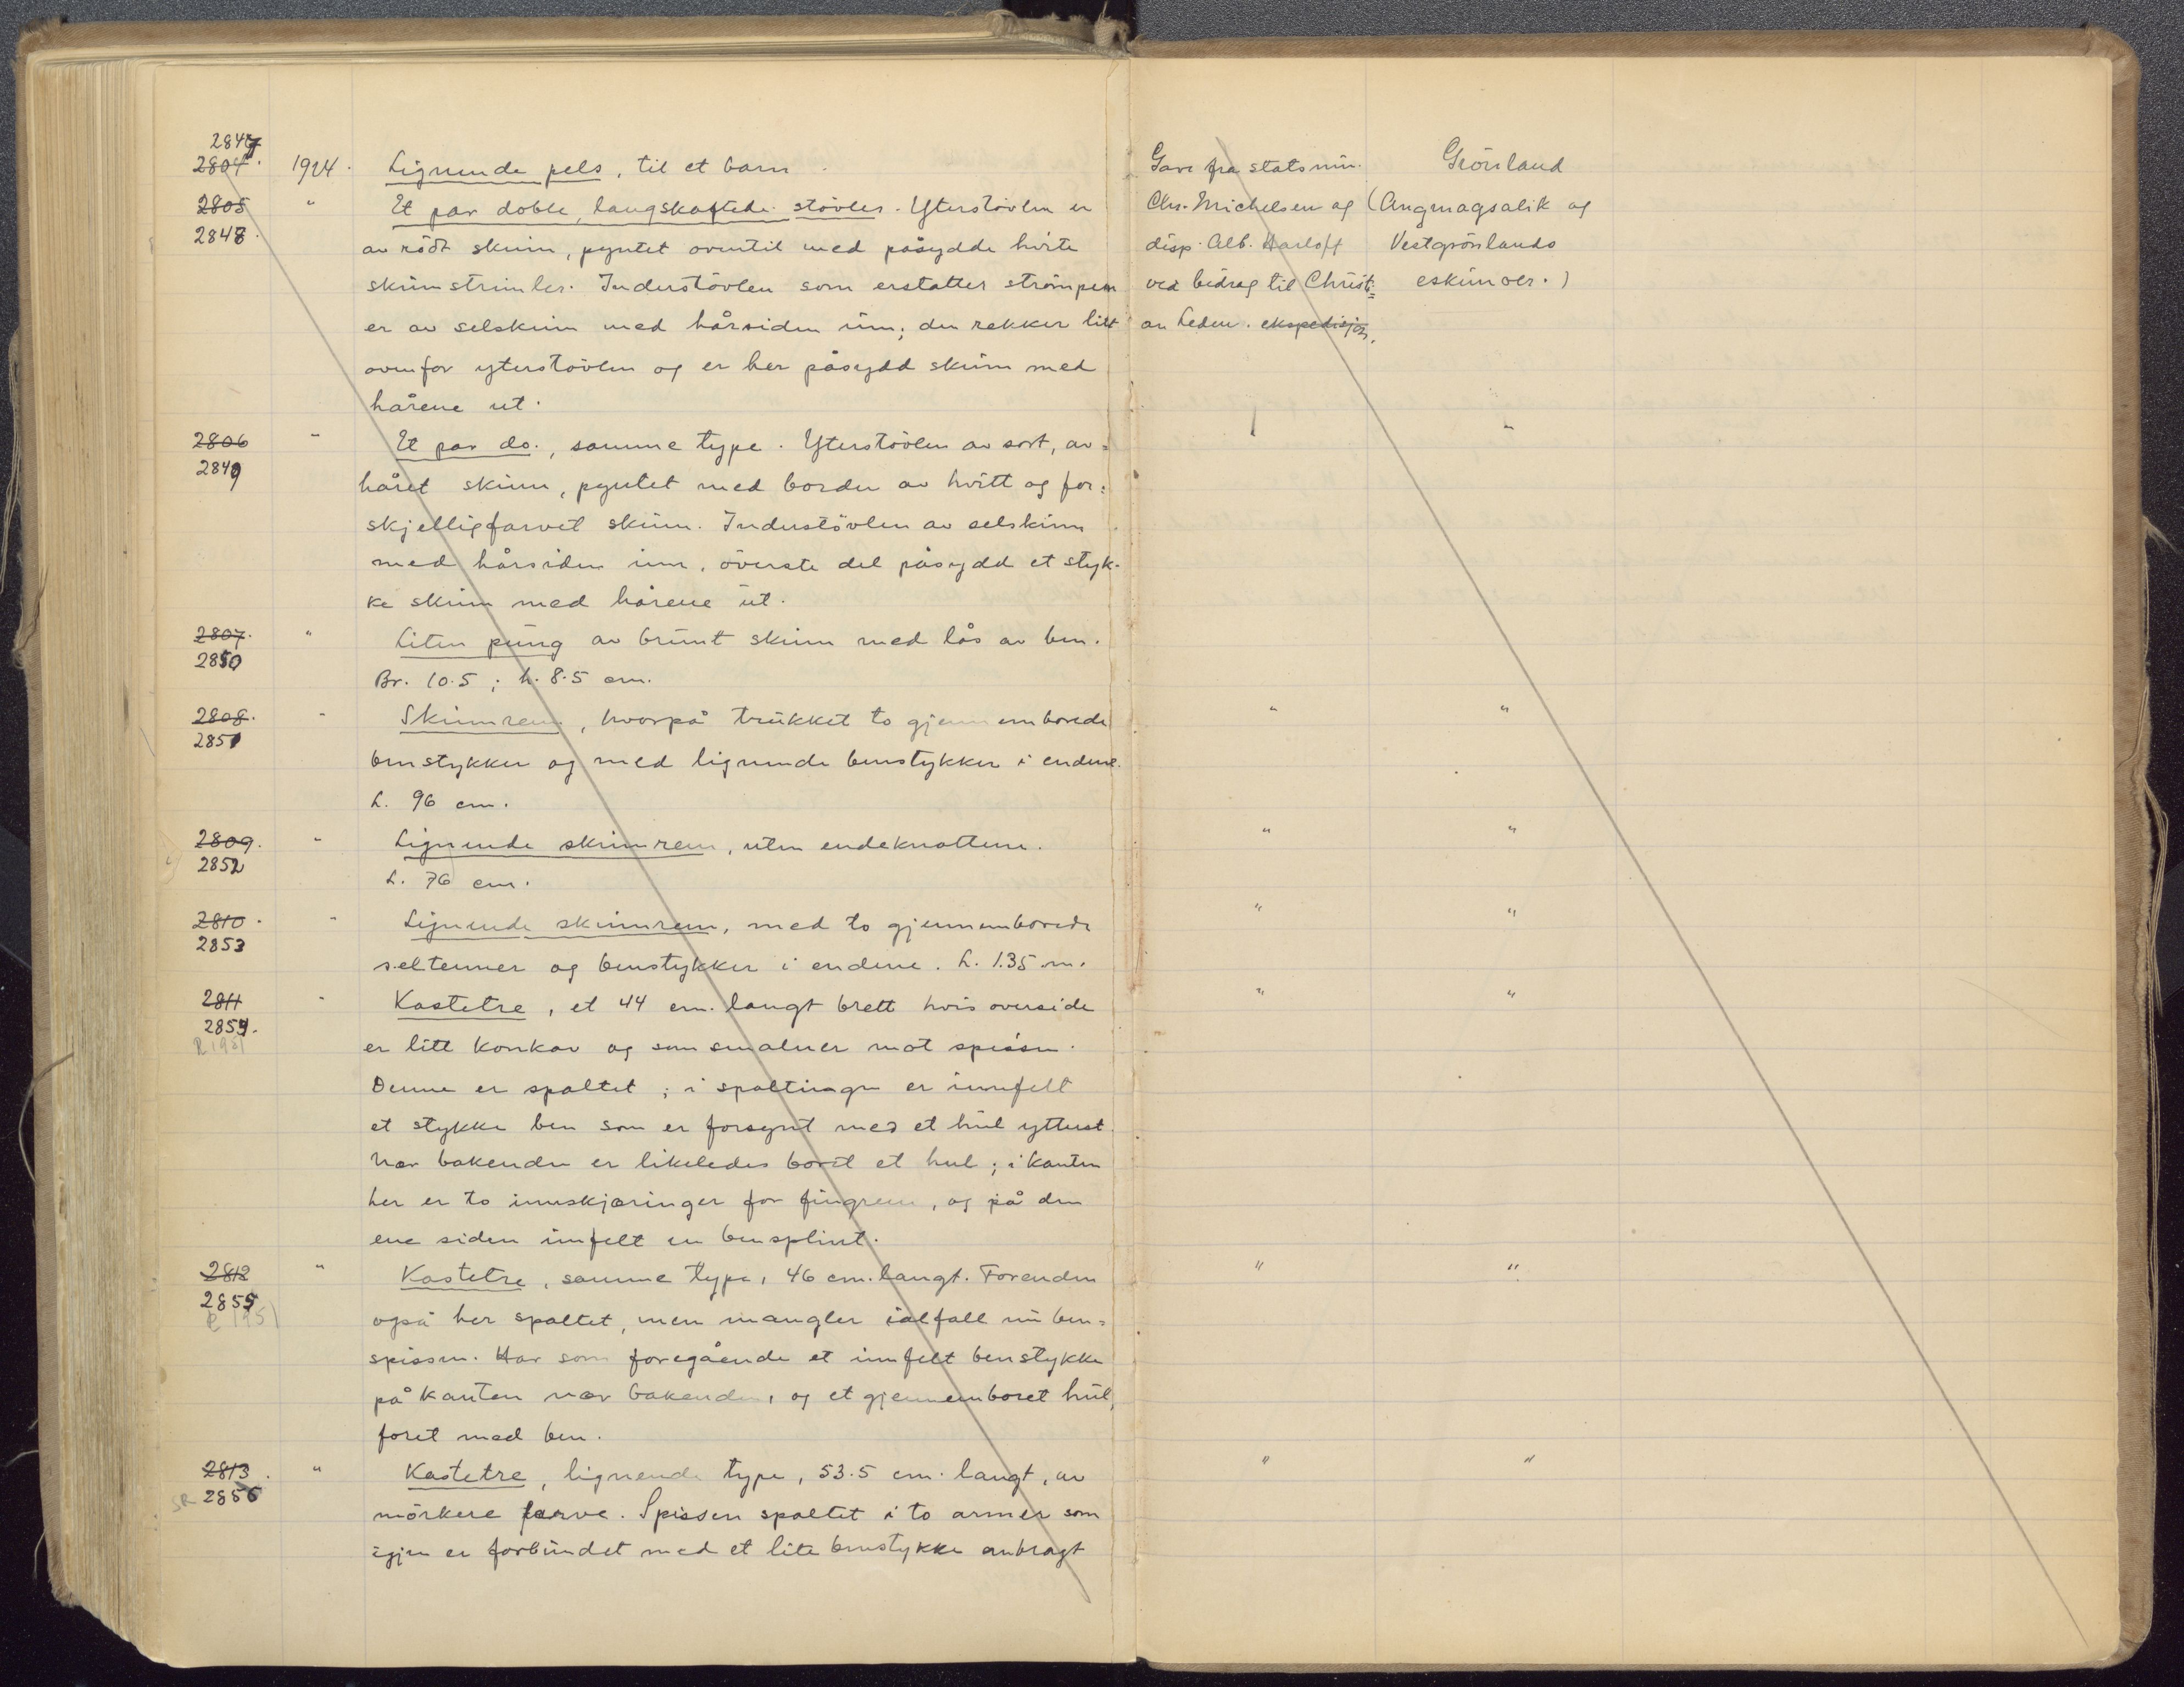 2847
2804. 1924. Lignende pels, til et barn.
2805 " Et par doble, langskaftede støvler. Yterstøvlen er
2848. av rødt skinn, pyntet oventil med påsydde hvite
skinnstrimler. Inderstøvlen som erstatter strømpen
er av selskinn med hårsiden inn; den rekker litt
ovenfor yterstøvlen og er her påsydd skinn med
hårene ut.
2806 " Et par do., samme type. Yterstøvlen av sort, av=
2849 håret skinn, pyntet med border av hvitt og for=
skjelligfarvet skinn. Inderstøvlen av selskinn
med hårsiden inn, øverste del påsydd et styk-
ke skinn med hårene ut.
2807. " Liten pung av brunt skinn med lås av ben.
2850 Br. 10.5; h. 8.5 cm.
2808. " Skinnrem, hvorpå trukket to gjennemborede
2851 benstykker og med lignende benstykker i endene.
L. 96 cm.
2809. " Lignende skinnrem, uten endeknottene.
2852 L. 76 cm.
2810. " Lignende skinnrem, med to gjennemborede
2853 seltenner og benstykker i endene. L. 1.35 m.
2811 " Kastetre, et 44 cm. langt brett hvis overside
2854. er litt konkav og som smalner mot spissen.
R 1951
Denne er spaltet; i spaltingen er innfelt
et stykke ben som er forsynt med et hul ytterst.
Nær bakenden er likeledes boret et hul; i kanten
her er to innskjæringer for fingrene, og på den
ene siden innfelt en bensplint.
2812 " Kastetre, samme type, 46 cm. langt. Forenden
2855 også her spaltet, men mangler ialfall nu ben=
R 1951
spissen. Har som foregående et innfelt benstykke
på kanten nær bakenden, og et gjennemboret hul,
foret med ben.
2813. " Kastetre, lignende type, 53.5 cm. langt, av
SR 2856 mørkere farve. Spissen spaltet i to armer som
igjen er forbundet med et lite benstykke anbragt
Gave fra statsmin. Grönland
Chr. Michelsen og (Angmagsalik og
disp. Alb. Harloff Vestgrönlands
ved bidrag til Christi= eskimoer.)
an Leden. ekspedisjon.
"
" "
" "
" "
" "
" "
" "